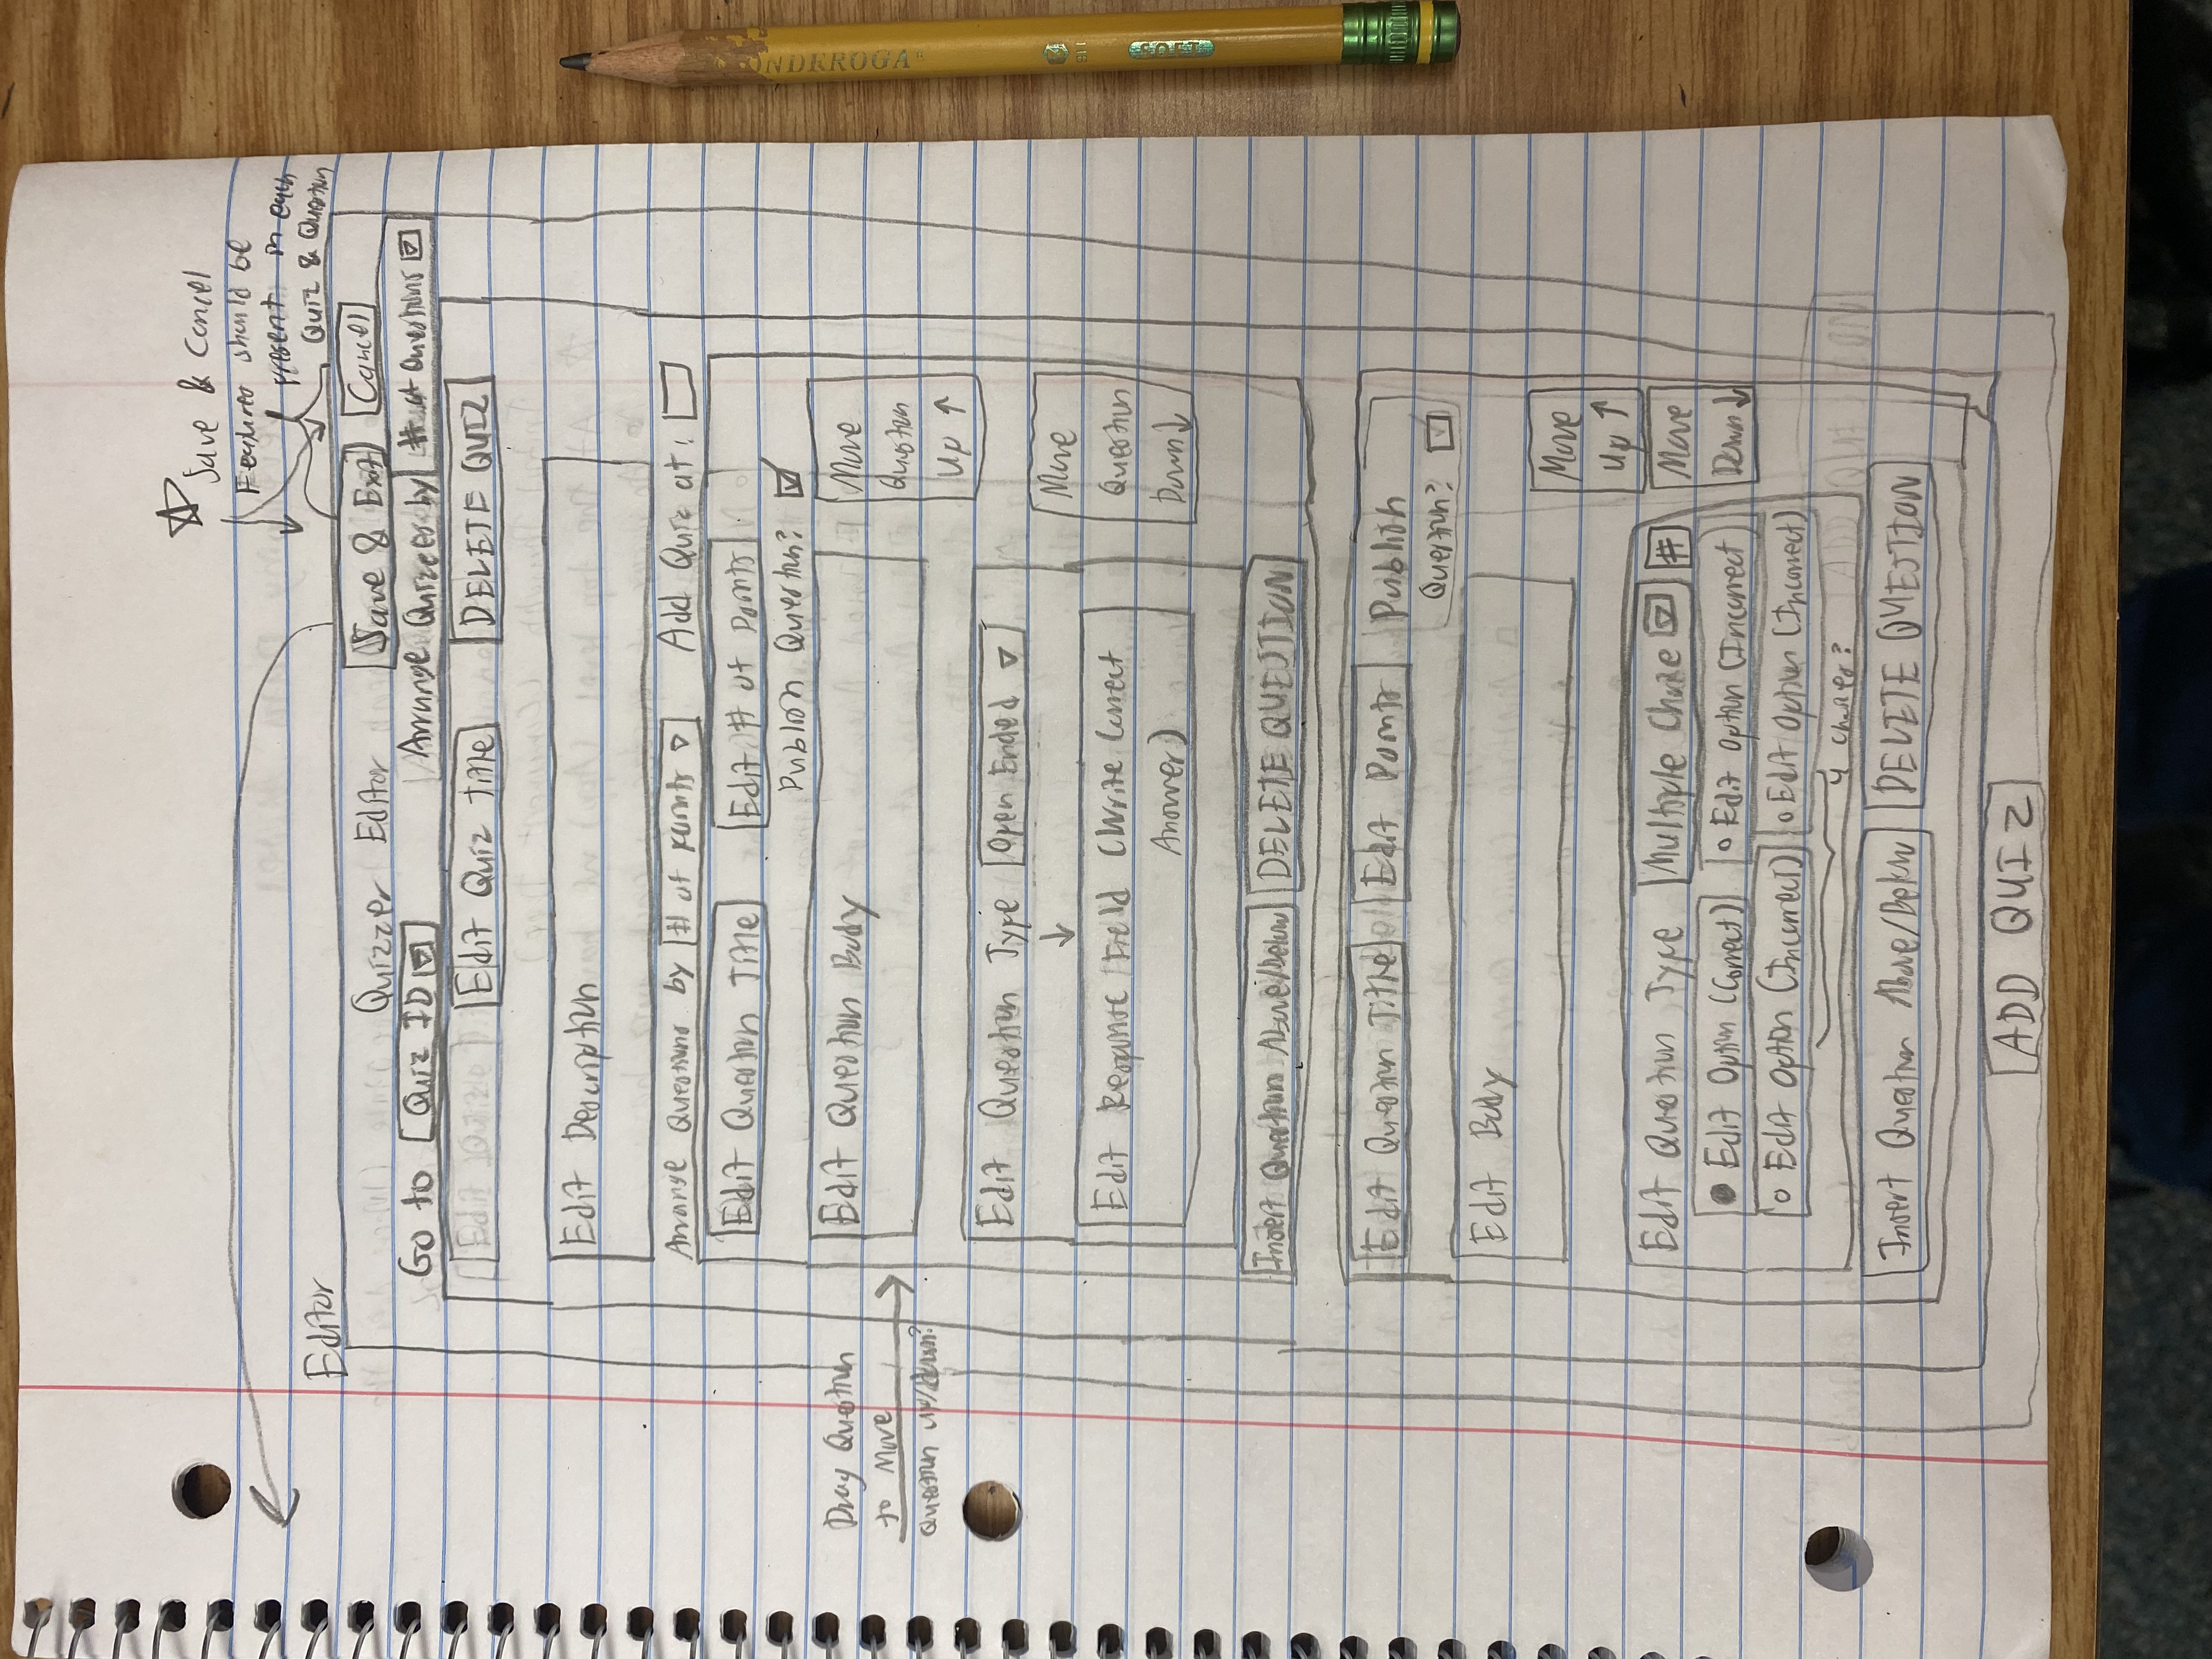 Save & Cancel
Features should be
present in each
Quiz & Question
Editor
Quizzer Editor Save & Exit Cancel
Go to Quiz ID Arrange Quizzes by # of Questions
Edit Quiz Title DELETE QUIZ
Edit Description
Arrange Questions by # of points Add Quiz at:
Edit Question Title Edit # of Points
Publish Question?
Drag Question
to Move
Question up/down?
Edit Question Body
Move
Question
Up ↑
Edit Question Type Open Ended
↓
Edit Response Field (Write Correct
Answer)
Move
Question
Down ↓
Insert Question Above/Below DELETE QUESTION
Edit Question Title Edit Points Publish
Question?
Edit Body
Move
Up ↑
Edit Question Type Multiple Choice #
Move
Down ↓
Edit Option (Correct) Edit Option (Incorrect)
Edit Option (Incorrect) Edit Option (Incorrect)
4 choices?
Insert Question Above/Below DELETE QUESTION
ADD QUIZ